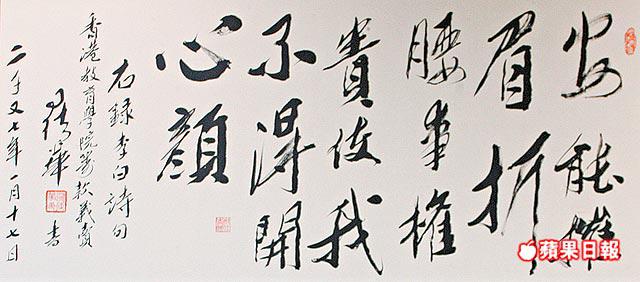 安能摧
眉折
腰事權
貴使我
不得開
心顏
右錄李白詩句
香港教育學院籌款義賣
華書
二千又七年一月十七日
蘋果日報